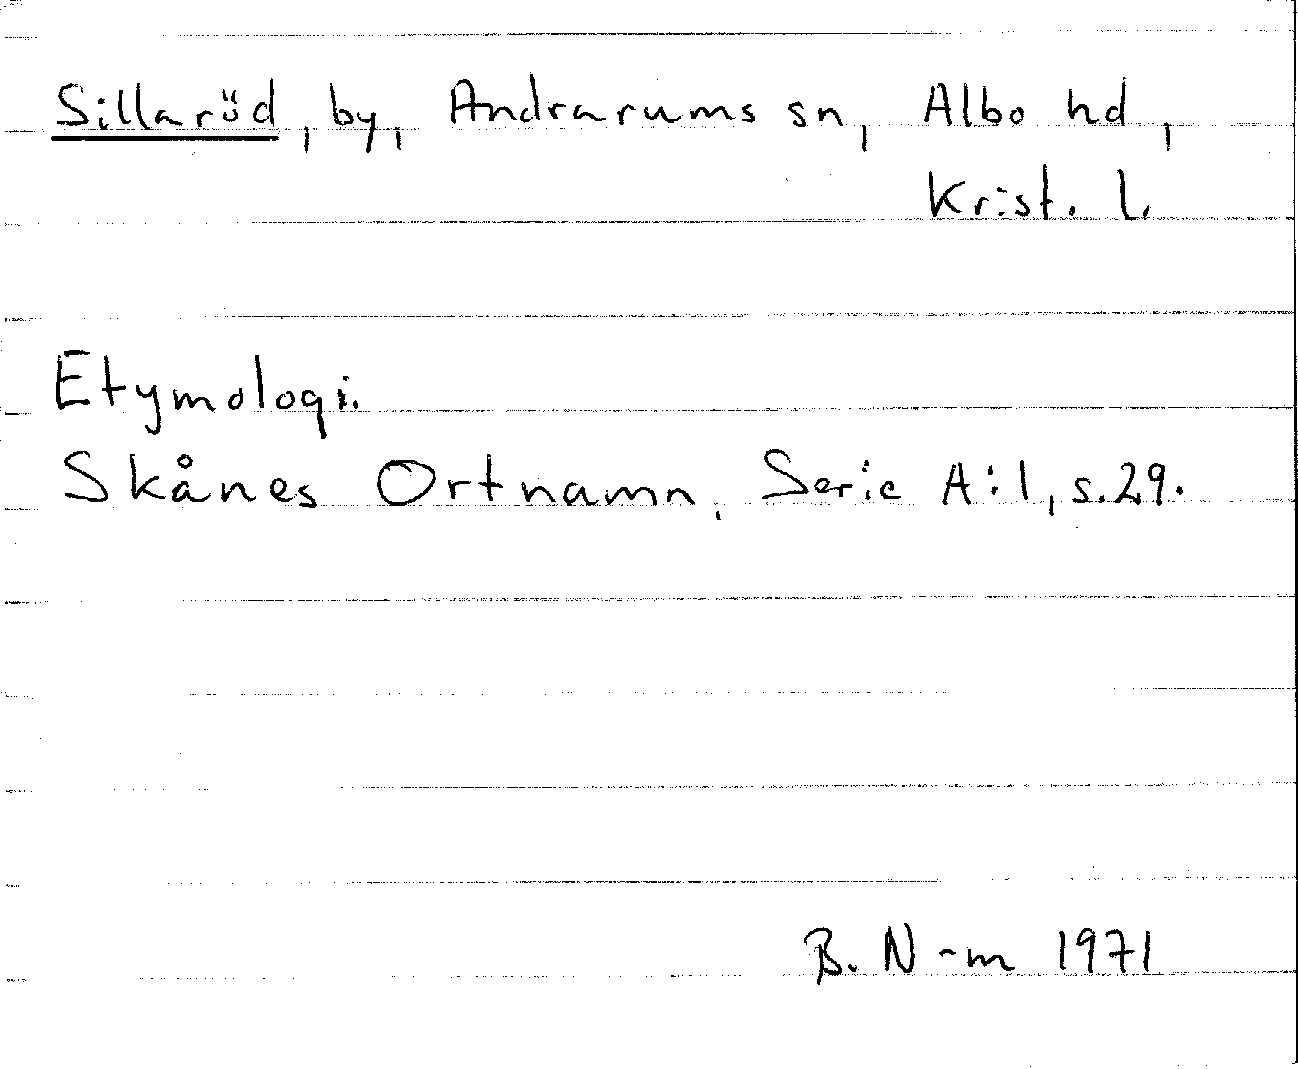 Sillaröd, by, Andrarums sn, Albo hd,
Krist. l.
Etymologi.
Skånes Ortnamn, Serie A:1, s.29.
B. N-m 1971